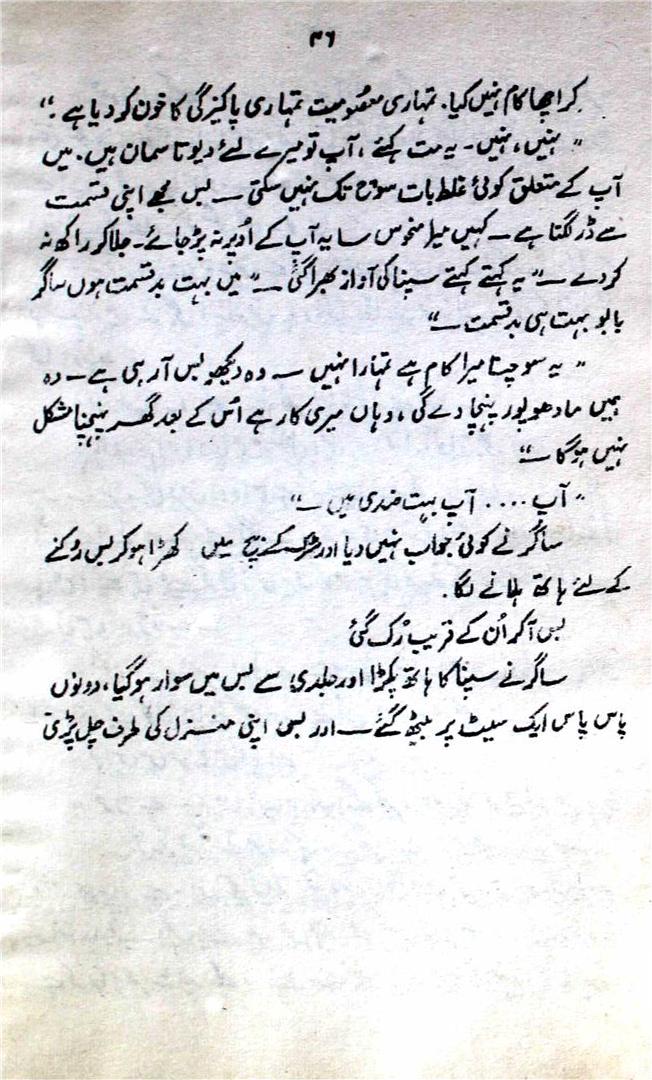 ۳۶
کر اچھا کام نہیں کیا. تمہاری معصُومیت تمہاری پاکیزگی کا خون کر دیا ہے .“
” نہیں، نہیں ـ یہ مت کہئے ، آپ تو میرے لئے دیوتا سمان ہیں. میں
آپ کے متعلق کوئی غلط بات سوچ تک نہیں سکتی ــ بس مجھے اپنی قسمت
سے ڈر لگتا ہے ــ کہیں میرا منحوس سایہ آپ کے اُوپر نہ پڑ جائے ـ جلا کر راکھ نہ
کر دے ــ“ یہ کہتے کہتے سپنا کی آواز بھرا گئی ــ ” میں بہت بد قسمت ہوں ساگر
بابو بہت ہی بد قسمت ــ“
” یہ سوچنا میرا کام ہے تمہارا نہیں ــ وہ دیکھو بس آ رہی ہے ــ وہ
ہمیں مادھو پور پہنچا دے گی ، وہاں میری کار ہے اُس کے بعد گھر پہنچنا مشکل
نہیں ہوگا ــ“
” آپ .... آپ بہت ضدی ہیں ــ“
ساگر نے کوئی جواب نہیں دیا اور سڑک کے بیچ میں کھڑا ہو کر بس رُکنے
کے لئے ہاتھ ہلانے لگا .
بس آ کر اُن کے قریب رُک گئی
ساگر نے سپنا کا ہاتھ پکڑا اور جلدی سے بس میں سوار ہو گیا ، دونوں
پاس پاس ایک سیٹ پر بیٹھ گئے ــ اور بس اپنی منزل کی طرف چل پڑی